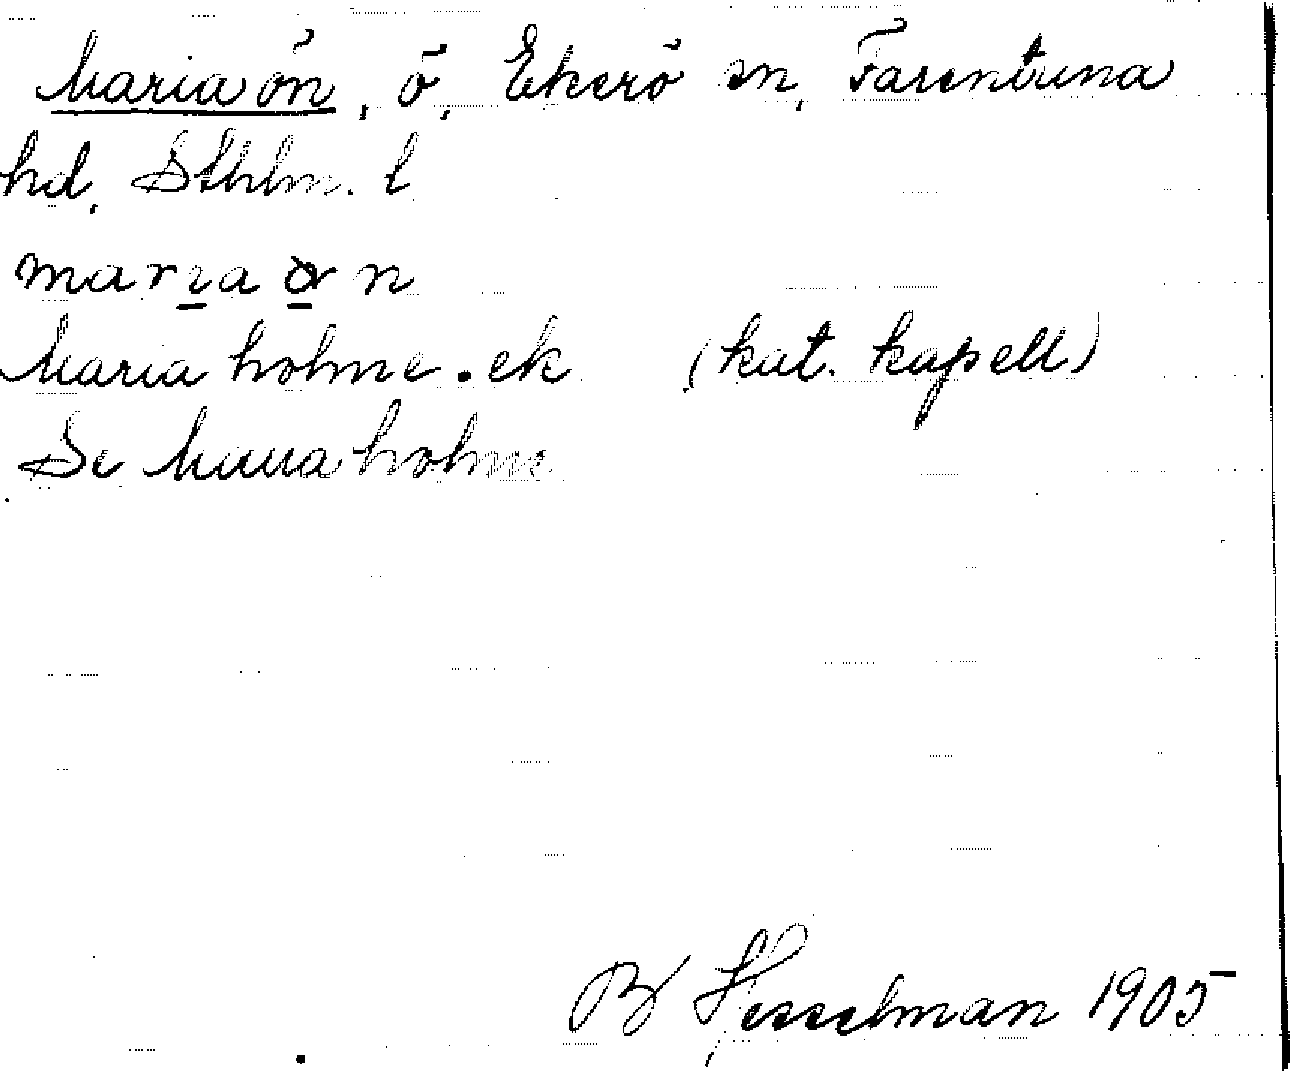 Mariaön, ö, Ekerö sn, Färentuna
hd, Sthlm. l
marıa ꞛ n
Maria holme . ek (kat. kapell)
De Maria holme
B Hesselman 1905